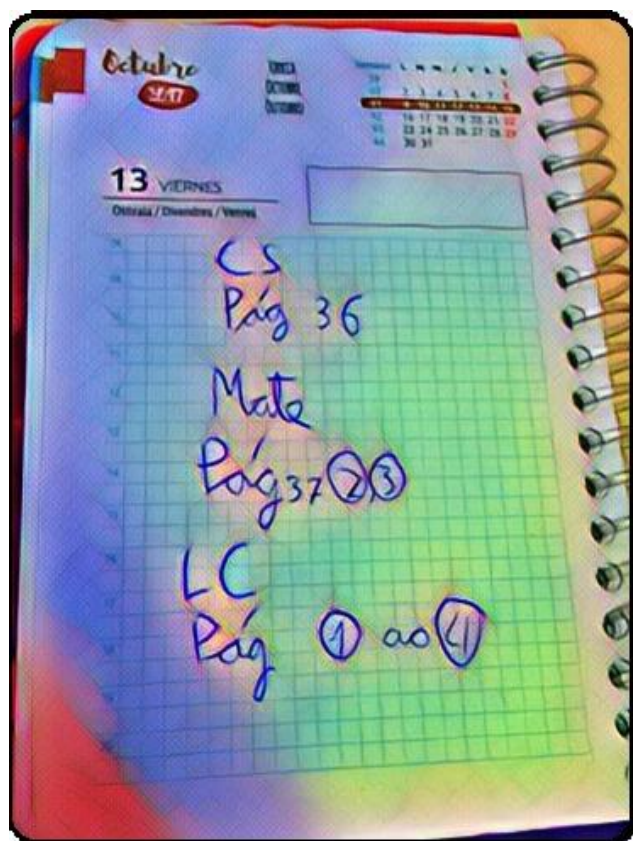 Octubre
2017
L M M J V S D
2 3 4 5 6 7 8
9 10 11 12 13 14 15
16 17 18 19 20 21 22
23 24 25 26 27 28 29
30 31
13 VIERNES
Ostirala / Divendres / Venres
CS
Pág 36
Mate
Pág 37 2, 3
LC
Pág 1 ao 4